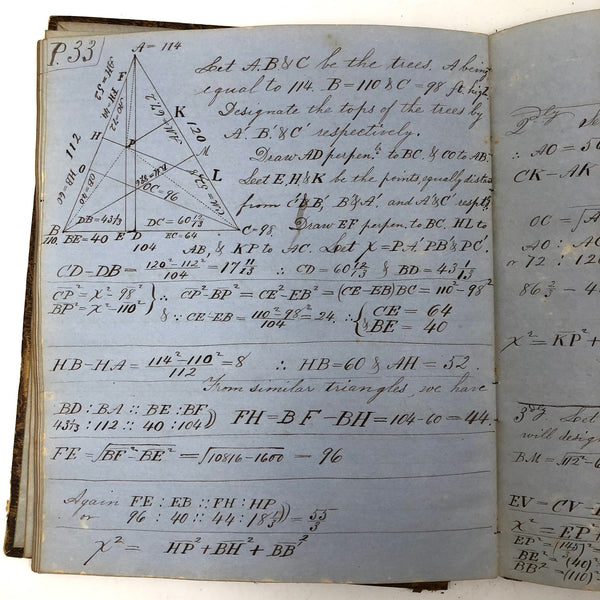 P. 33
A = 114
112
120
K
H
M
L
P
O
OC = 96
DB = 43 1/13
DC = 60 12/13
B
110
BE = 40
E
D
EC = 64
C = 98
104
Let A.B & C be the trees, A being
equal to 114. B = 110 & C = 98 ft. high
Designate the tops of the trees by
A'. B'. & C' respectively.
Draw AD perpen. to BC. & CO to AB.
Leet E, H & K be the points equally dista
from C' & B', B' & A'. and A' & C' respt.
Draw EF perpen. to BC. HL to
AB, & KP to AC. Leet X = P.A' PB' & PC'.
CD – DB = 120² – 112² / 104 = 17 11/13 ∴ CD = 60 12/13 & BD = 43 1/13
CP² = X² – 98²
BP² = X² – 110²
∴ CP² – BP² = CE² – EB² = (CE – EB) BC = 110² – 98²
& ∵ CE – EB = 110² – 98² / 104 = 24. ∴ { CE = 64
BE = 40
HB – HA = 114² – 110² / 112 = 8 ∴ HB = 60 & AH = 52.
From similar triangles, we have
BD : BA :: BE : BF
43 1/13 : 112 :: 40 : 104
FH = BF – BH = 104 – 60 = 44.
FE = √BF² – BE² = √10816 – 1600 = 96
Again FE : EB :: FH : HP
or 96 : 40 :: 44 : 18 1/3 = 55/3
X² = HP² + BH² + BB²
2dly
∴ AO = 50
CK – AK
OC = √A
AO : AC
or 72 : 12
86 2/3 – 4
X² = KP² +
3dly Let
will desig
BM = √112² – 6
EV = CV – E
X² = EP² +
EP² = (145)² =
BE² = (40)²
BB² = (110)²